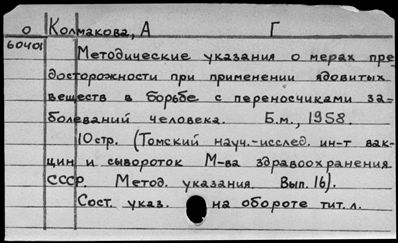 О Колмакова, А Г
60401
Методические указания о мерах пре
досторожности при применении ядовитых
веществ в борьбе с переносчиками за-
болеваний человека. Б.м., 1958.
10стр. (Томский науч.-исслед. ин-т вак-
цин и сывороток М-ва здравоохранения
СССР. Метод. указания Вып. 16).
Сост. указ. на обороте тит. л.